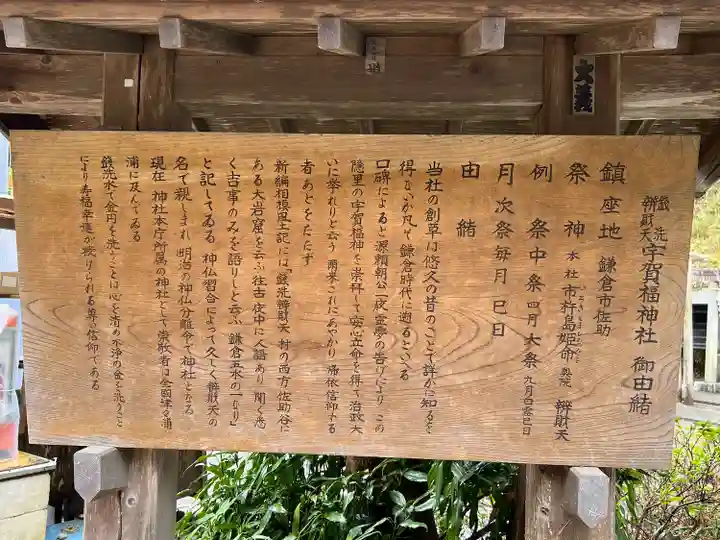 銭洗
辨財天 宇賀福神社 御由緒
鎮座地 鎌倉市佐助
祭神 本社 市杵島姫命 奥院 辨財天
例祭 中祭 四月 大祭 九月白露巳日
月次祭 毎月 巳日
由緒
当社の創草は悠久の昔のことで詳かに知るを
得ないが凡そ鎌倉時代に遡るといえる
口碑によると源頼朝公一夜霊夢の告げにより この
隠里の宇賀福神を崇拝して安心立命を得て治政大
いに挙れりと云う 爾来これにあやかり 帰依信仰する
者あとをたたず
新編相模風土記には「銭洗辨財天 村の西方 佐助谷に
ある大岩窟を云ふ 往古夜中に人語あり 聞く悉
く吉事のみを語りしと云ふ 鎌倉五水の一なり」
と記してゐる 神仏習合によって久しく辨財天の
名で親しまれ 明治の神仏分離令で神社となる
現在 神社本庁所属の神社として崇敬者は全国津々浦々
浦に及んでゐる
銭洗水で金円を洗うことは心を清め不浄の金を洗うこと
により寿福幸運が授けられる尊い信仰である